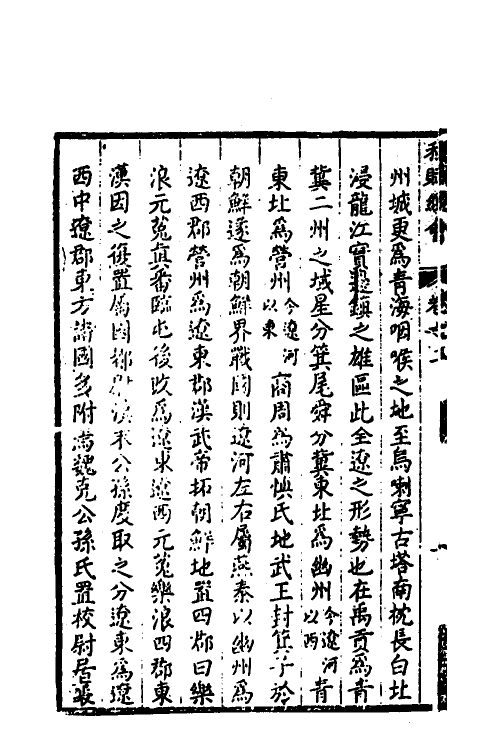 州城更爲青海咽喉之地至烏喇寧古塔南枕長白北
浸龍江實邊鎮之雄區此全遼之形勢也在禹貢爲青
冀二州之域星分箕尾舜分冀東北爲幽州今遼河以西青
東北爲營州今遼河以東商周爲肅愼氏地武王封箕子於
朝鮮遂爲朝鮮界戰國則遼河左右屬燕秦以幽州爲
遼西郡營州爲遼東郡漢武帝拓朝鮮地置四郡曰樂
浪元菟眞番臨屯後改爲遼東遼西元菟樂浪四郡東
漢因之復置屬國都尉漢末公孫度取之分遼東爲遼
西中遼郡東方諸國多附焉魏克公孫氏置校尉居襄